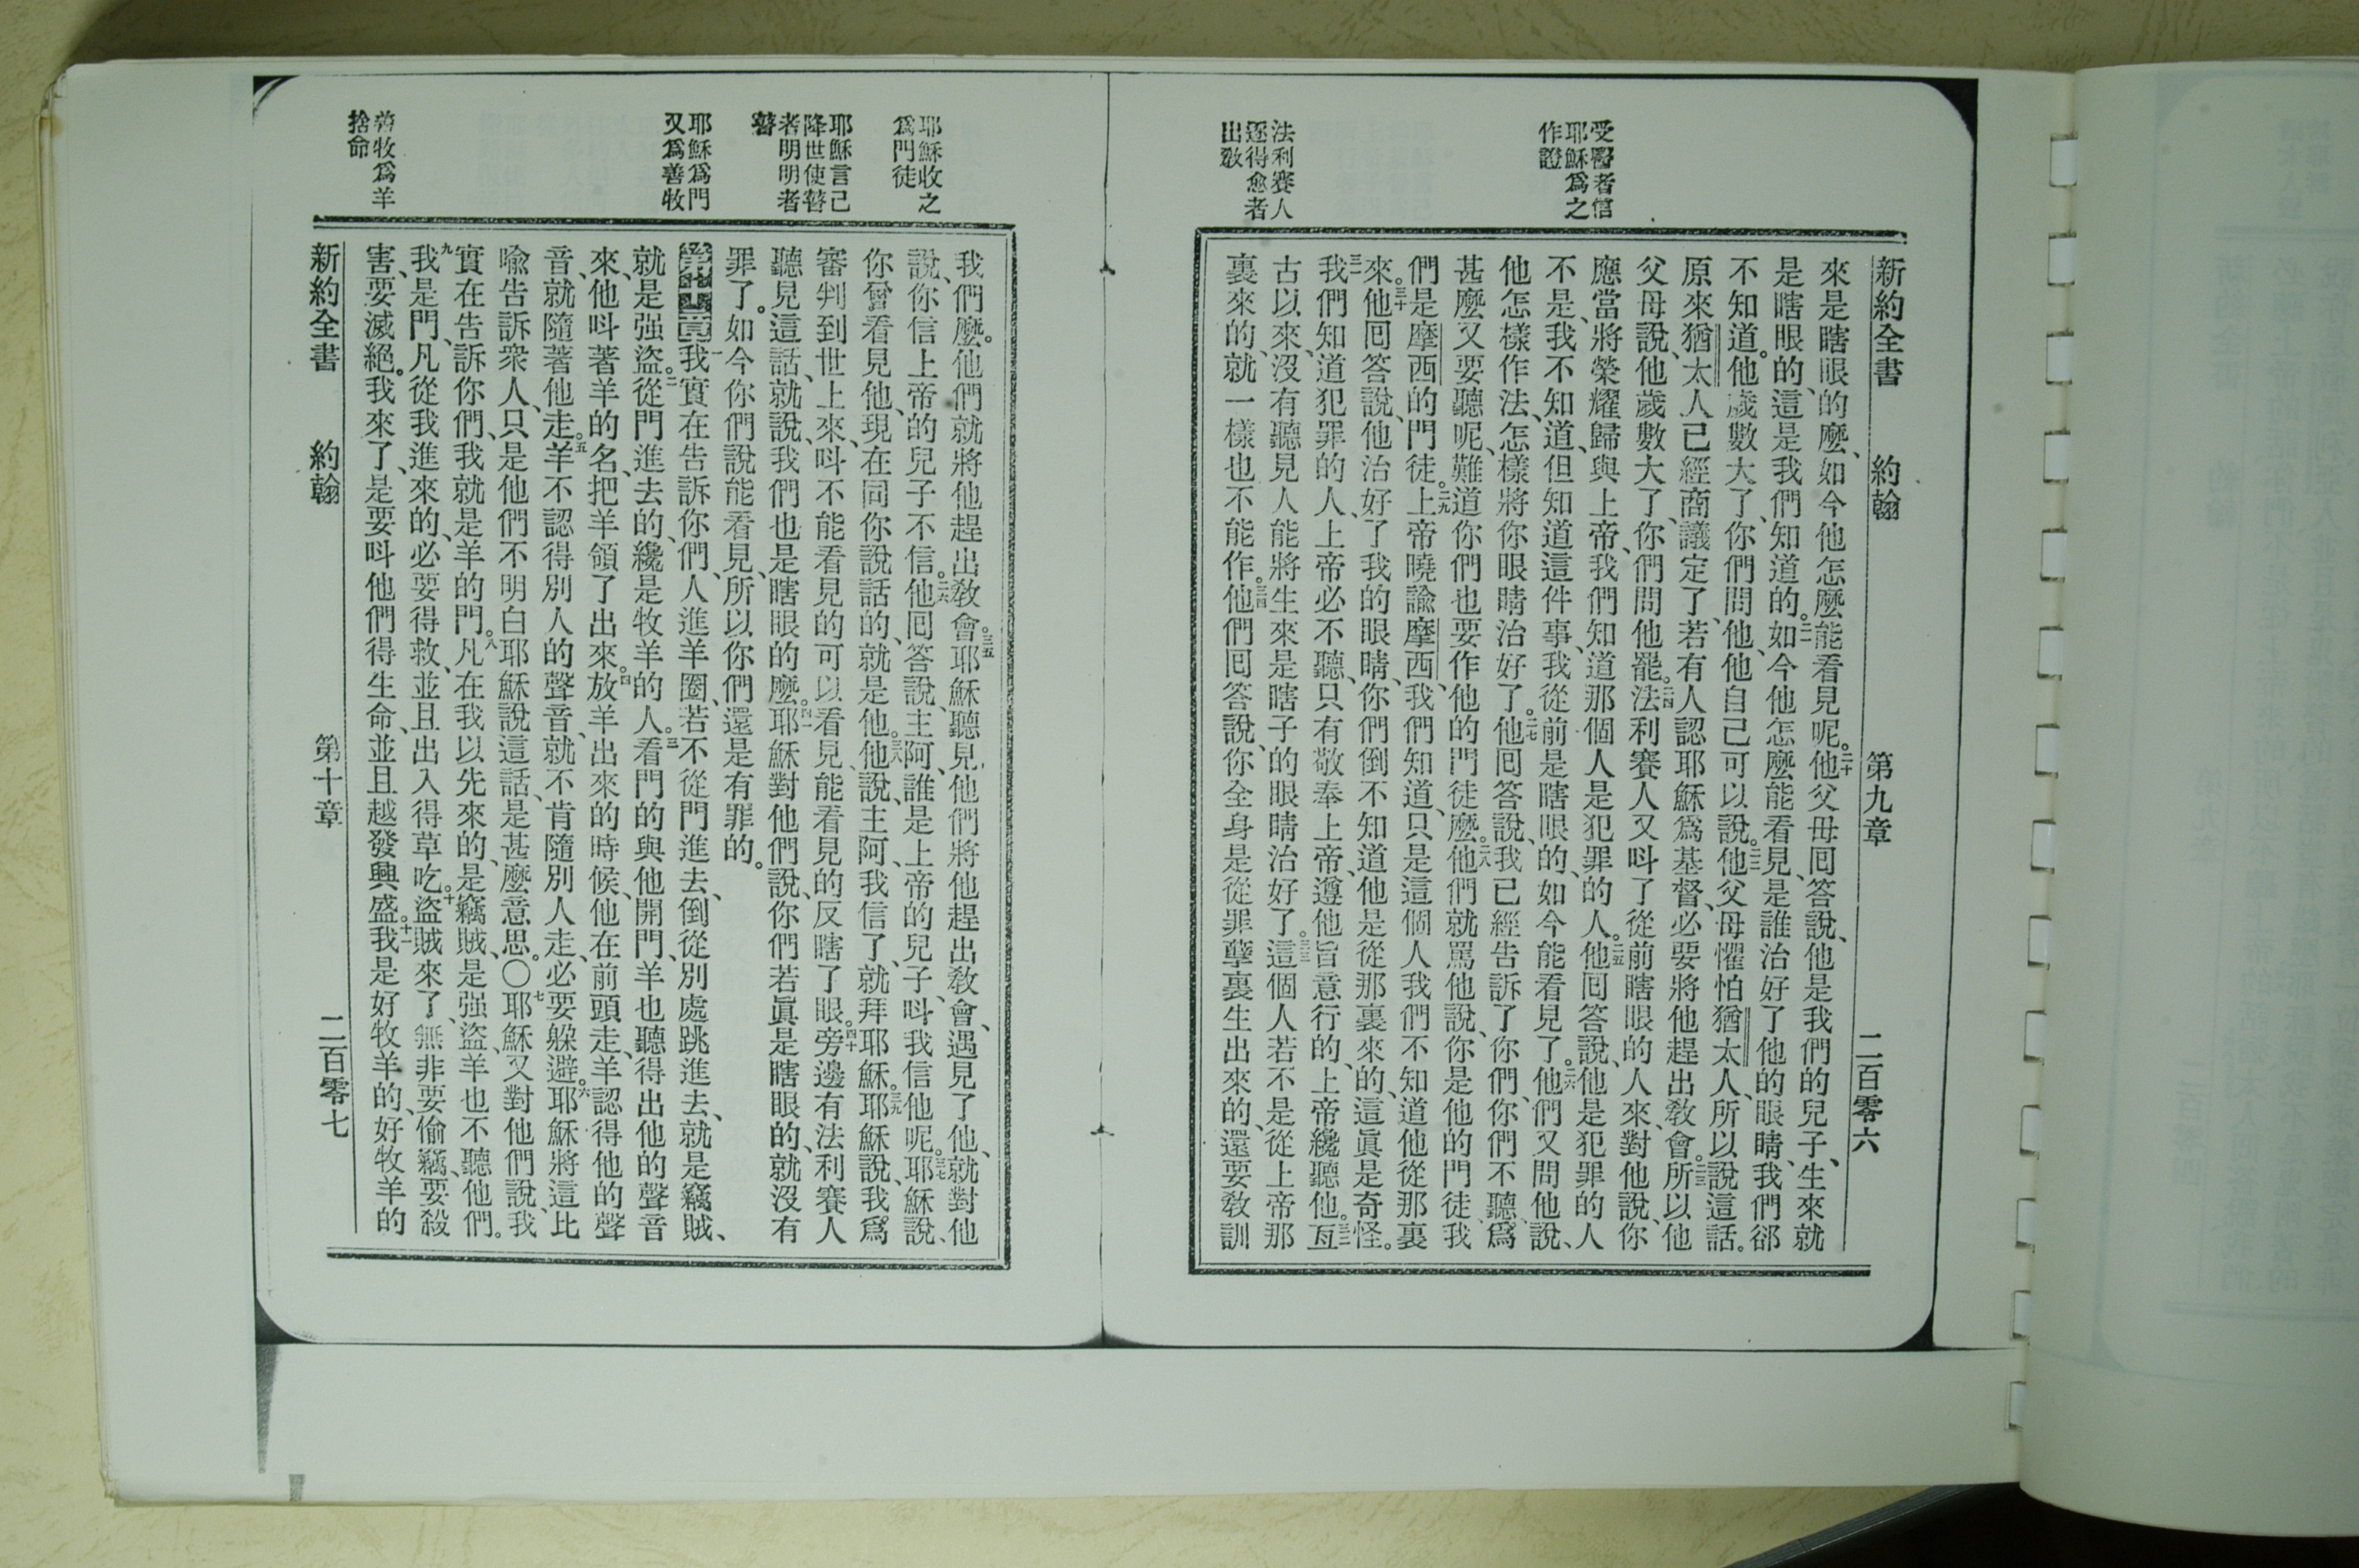 新約全書 約翰 第九章 二百零六
受醫者信
耶穌爲之
作證
法利賽人
逐得愈者
出敎
來是瞎眼的麼、如今他怎麼能看見呢。二十他父母囘答說、他是我們的兒子、生來就
是瞎眼的、這是我們知道的。二一如今他怎麼能看見、是誰治好了他的眼睛、我們郤
不知道。他歲數大了、你們問他、他自己可以說。二二他父母懼怕猶太人、所以說這話。
原來猶太人已經商議定了、若有人認耶穌爲基督、必要將他趕出敎會。二三所以他
父母說、他歲數大了、你們問他罷。二四法利賽人又呌了從前瞎眼的人來、對他說、你
應當將榮耀歸與上帝、我們知道那個人是犯罪的人。二五他囘答說、他是犯罪的人
不是、我不知道、但知道這件事、我從前是瞎眼的、如今能看見了。二六他們又問他說、
他怎樣作法、怎樣將你眼睛治好了。二七他囘答說、我已經告訴了你們、你們不聽、爲
甚麼又要聽呢、難道你們也要作他的門徒麼。二八他們就罵他說、你是他的門徒、我
們是摩西的門徒。二九上帝曉諭摩西、我們知道、只是這個人我們不知道他從那裏
來。三十他囘答說、他治好了我的眼睛、你們倒不知道他是從那裏來的、這眞是奇怪。
三一我們知道犯罪的人、上帝必不聽、只有敬奉上帝、遵他旨意行的、上帝纔聽他。三二亙
古以來、沒有聽見人能將生來是瞎子的眼睛治好了。三三這個人若不是從上帝那
裏來的、就一樣也不能作。三四他們囘答說、你全身是從罪孽裏生出來的、還要敎訓
耶穌收之
爲門徒
耶穌言己
降世使瞽
者明明者
瞽
耶穌爲門
又爲善牧
善牧爲羊
捨命
我們麼。他們就將他趕出敎會。三五耶穌聽見他們將他趕出敎會、遇見了他、就對他
說、你信上帝的兒子不信。三六他囘答說、主阿、誰是上帝的兒子、呌我信他呢。三七耶穌說、
你曾看見他、現在同你說話的、就是他。三八他說、主阿、我信了、就拜耶穌。三九耶穌說、我爲
審判到世上來、呌不能看見的可以看見、能看見的反瞎了眼。四十旁邊有法利賽人
聽見這話、就說、我們也是瞎眼的麼。四一耶穌對他們說、你們若眞是瞎眼的、就沒有
罪了。如今你們說能看見、所以你們還是有罪的。
第十章 一我實在告訴你們、人進羊圈、若不從門進去、倒從別處跳進去、就是竊賊、
就是强盜。二從門進去的、纔是牧羊的人。三看門的與他開門、羊也聽得出他的聲音
來、他呌著羊的名、把羊領了出來。四放羊出來的時候、他在前頭走、羊認得他的聲
音、就隨著他走。五羊不認得別人的聲音、就不肯隨別人走、必要躲避。六耶穌將這比
喩告訴衆人、只是他們不明白耶穌說這話、是甚麼意思。〇七耶穌又對他們說、我
實在告訴你們、我就是羊的門。八凡在我以先來的、是竊賊、是强盜、羊也不聽他們。
九我是門、凡從我進來的、必要得救、並且出入得草吃。十盜賊來了、無非要偷竊、要殺
害、要滅絕。我來了、是要呌他們得生命、並且越發興盛。十一我是好牧羊的、好牧羊的
新約全書 約翰 第十章 二百零七